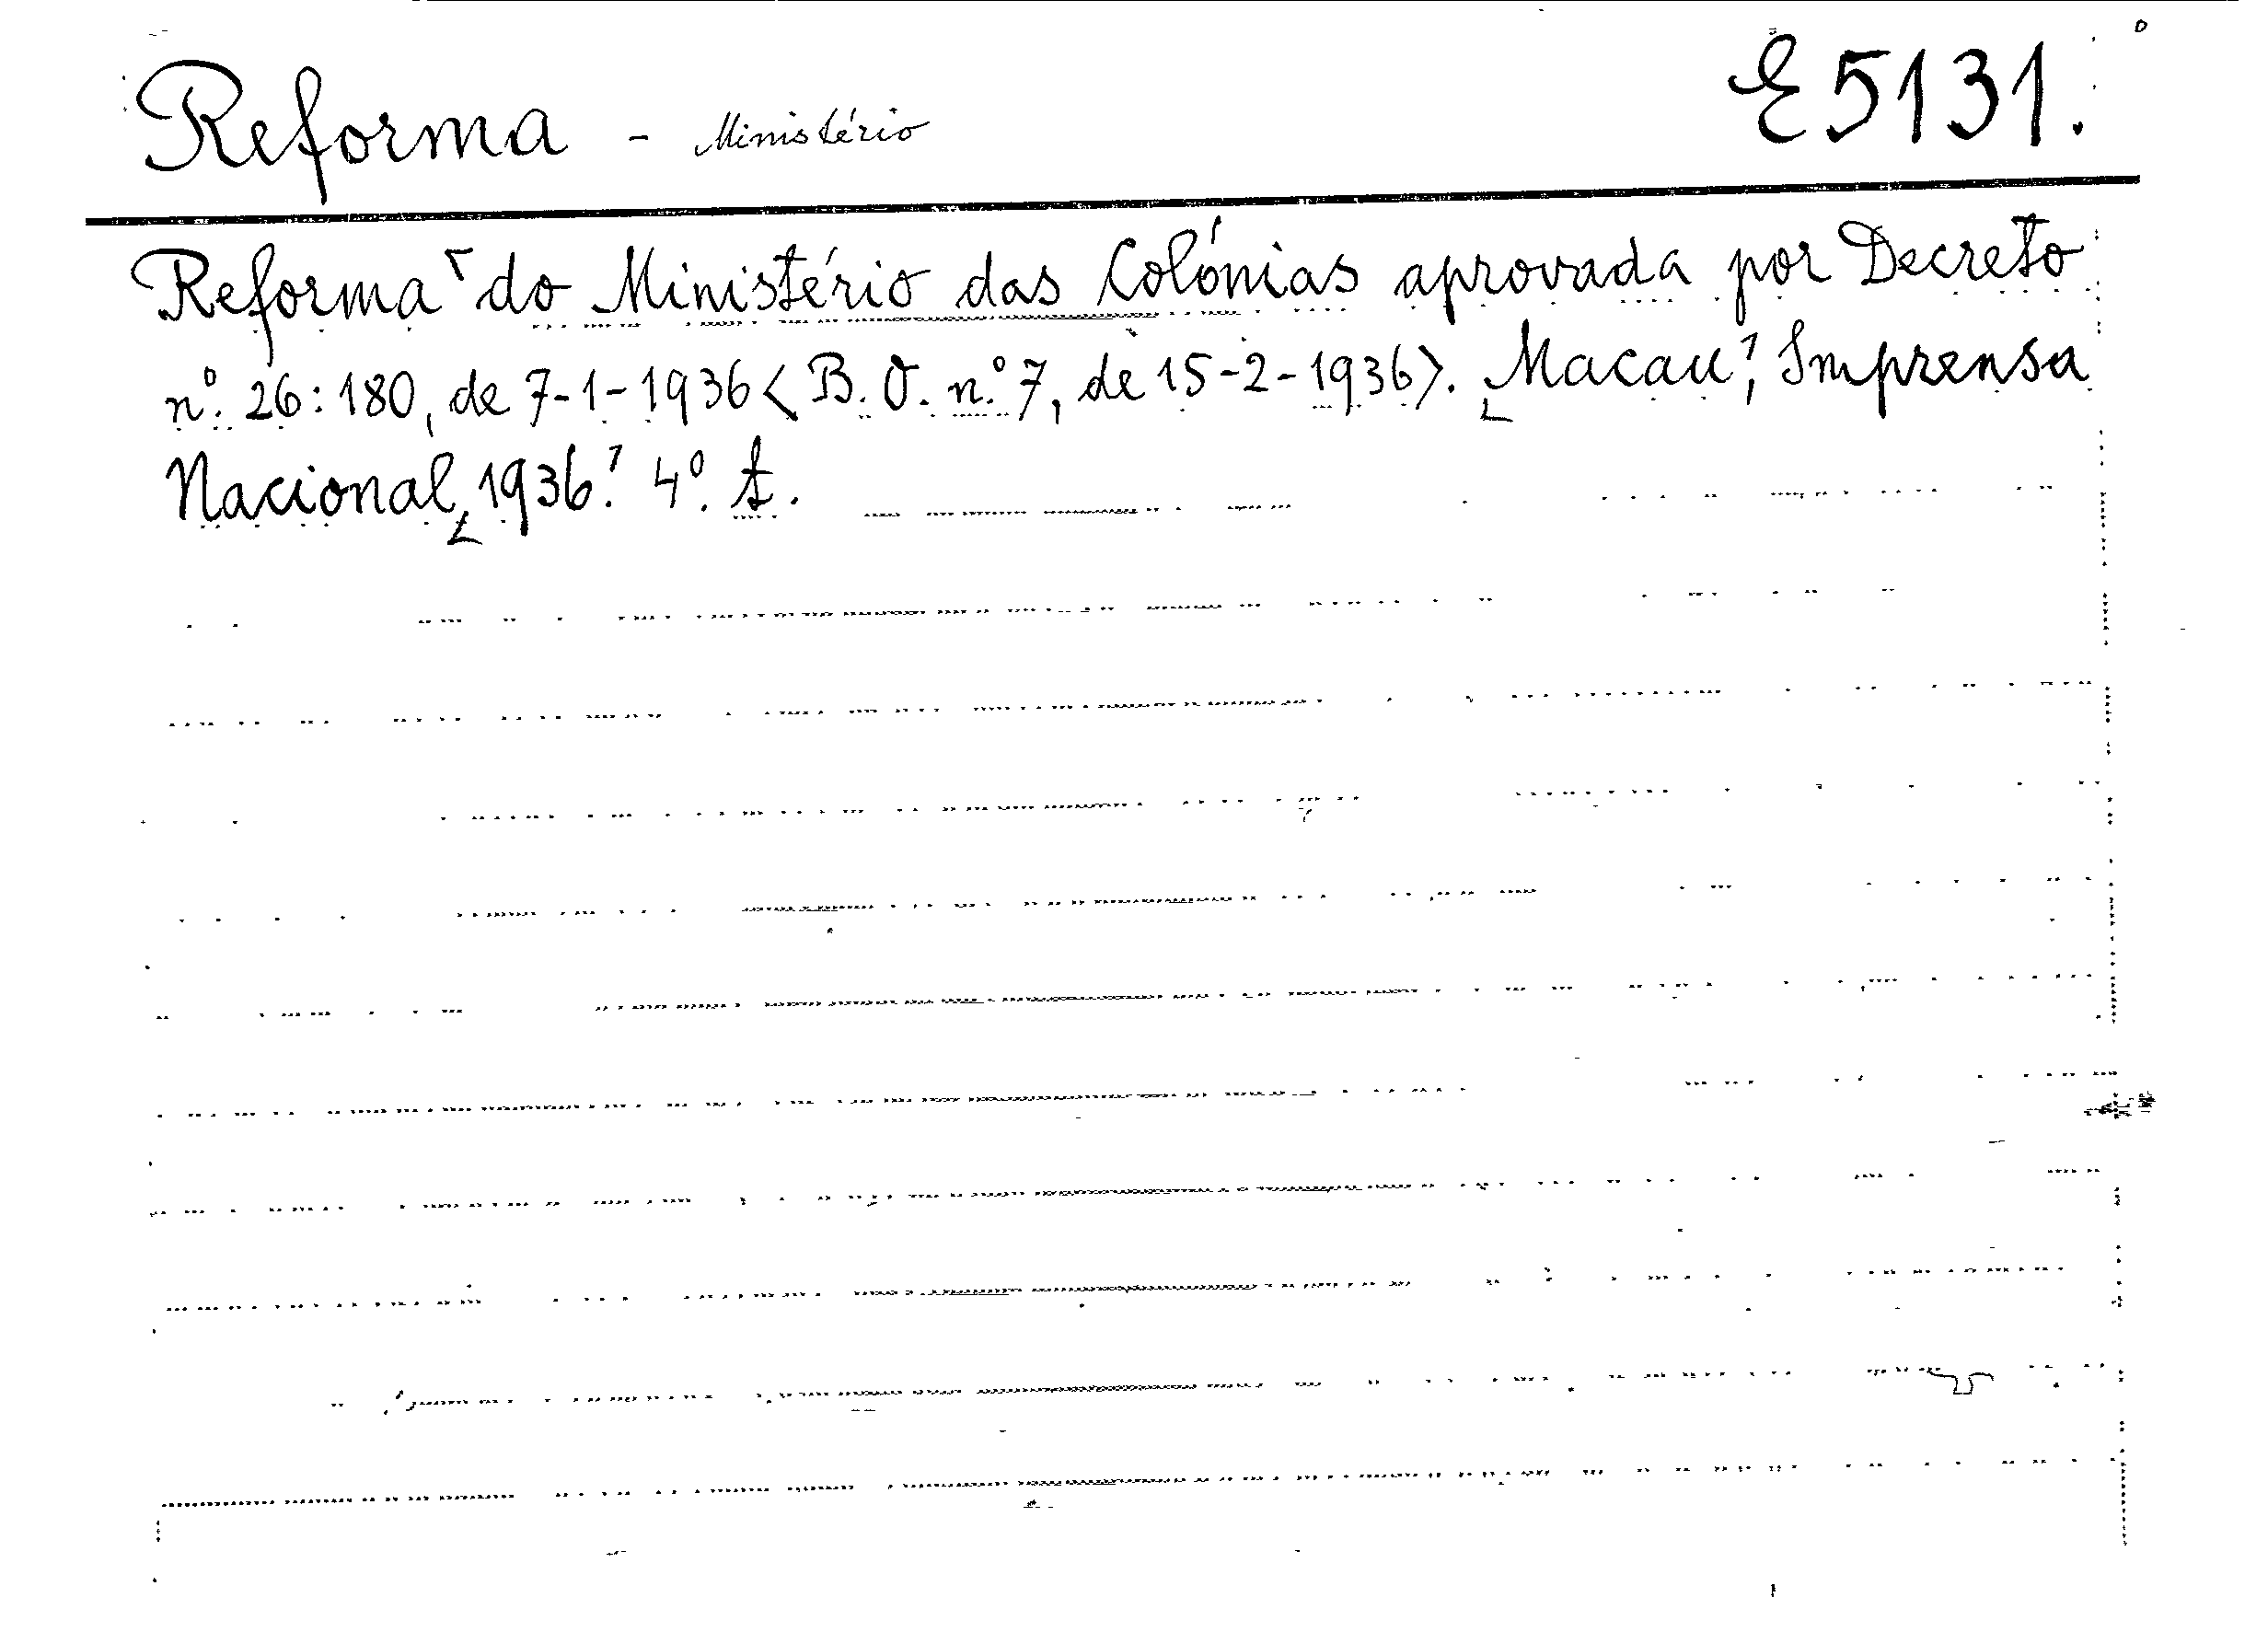 Reforma - Ministério E5131.
Reforma do Ministério das Colónias aprovada por Decreto
nº. 26:180, de 7-1-1936 < B. O. n.º 7, de 15-2-1936>. Macau, Imprensa
Nacional, 1936. 4º.